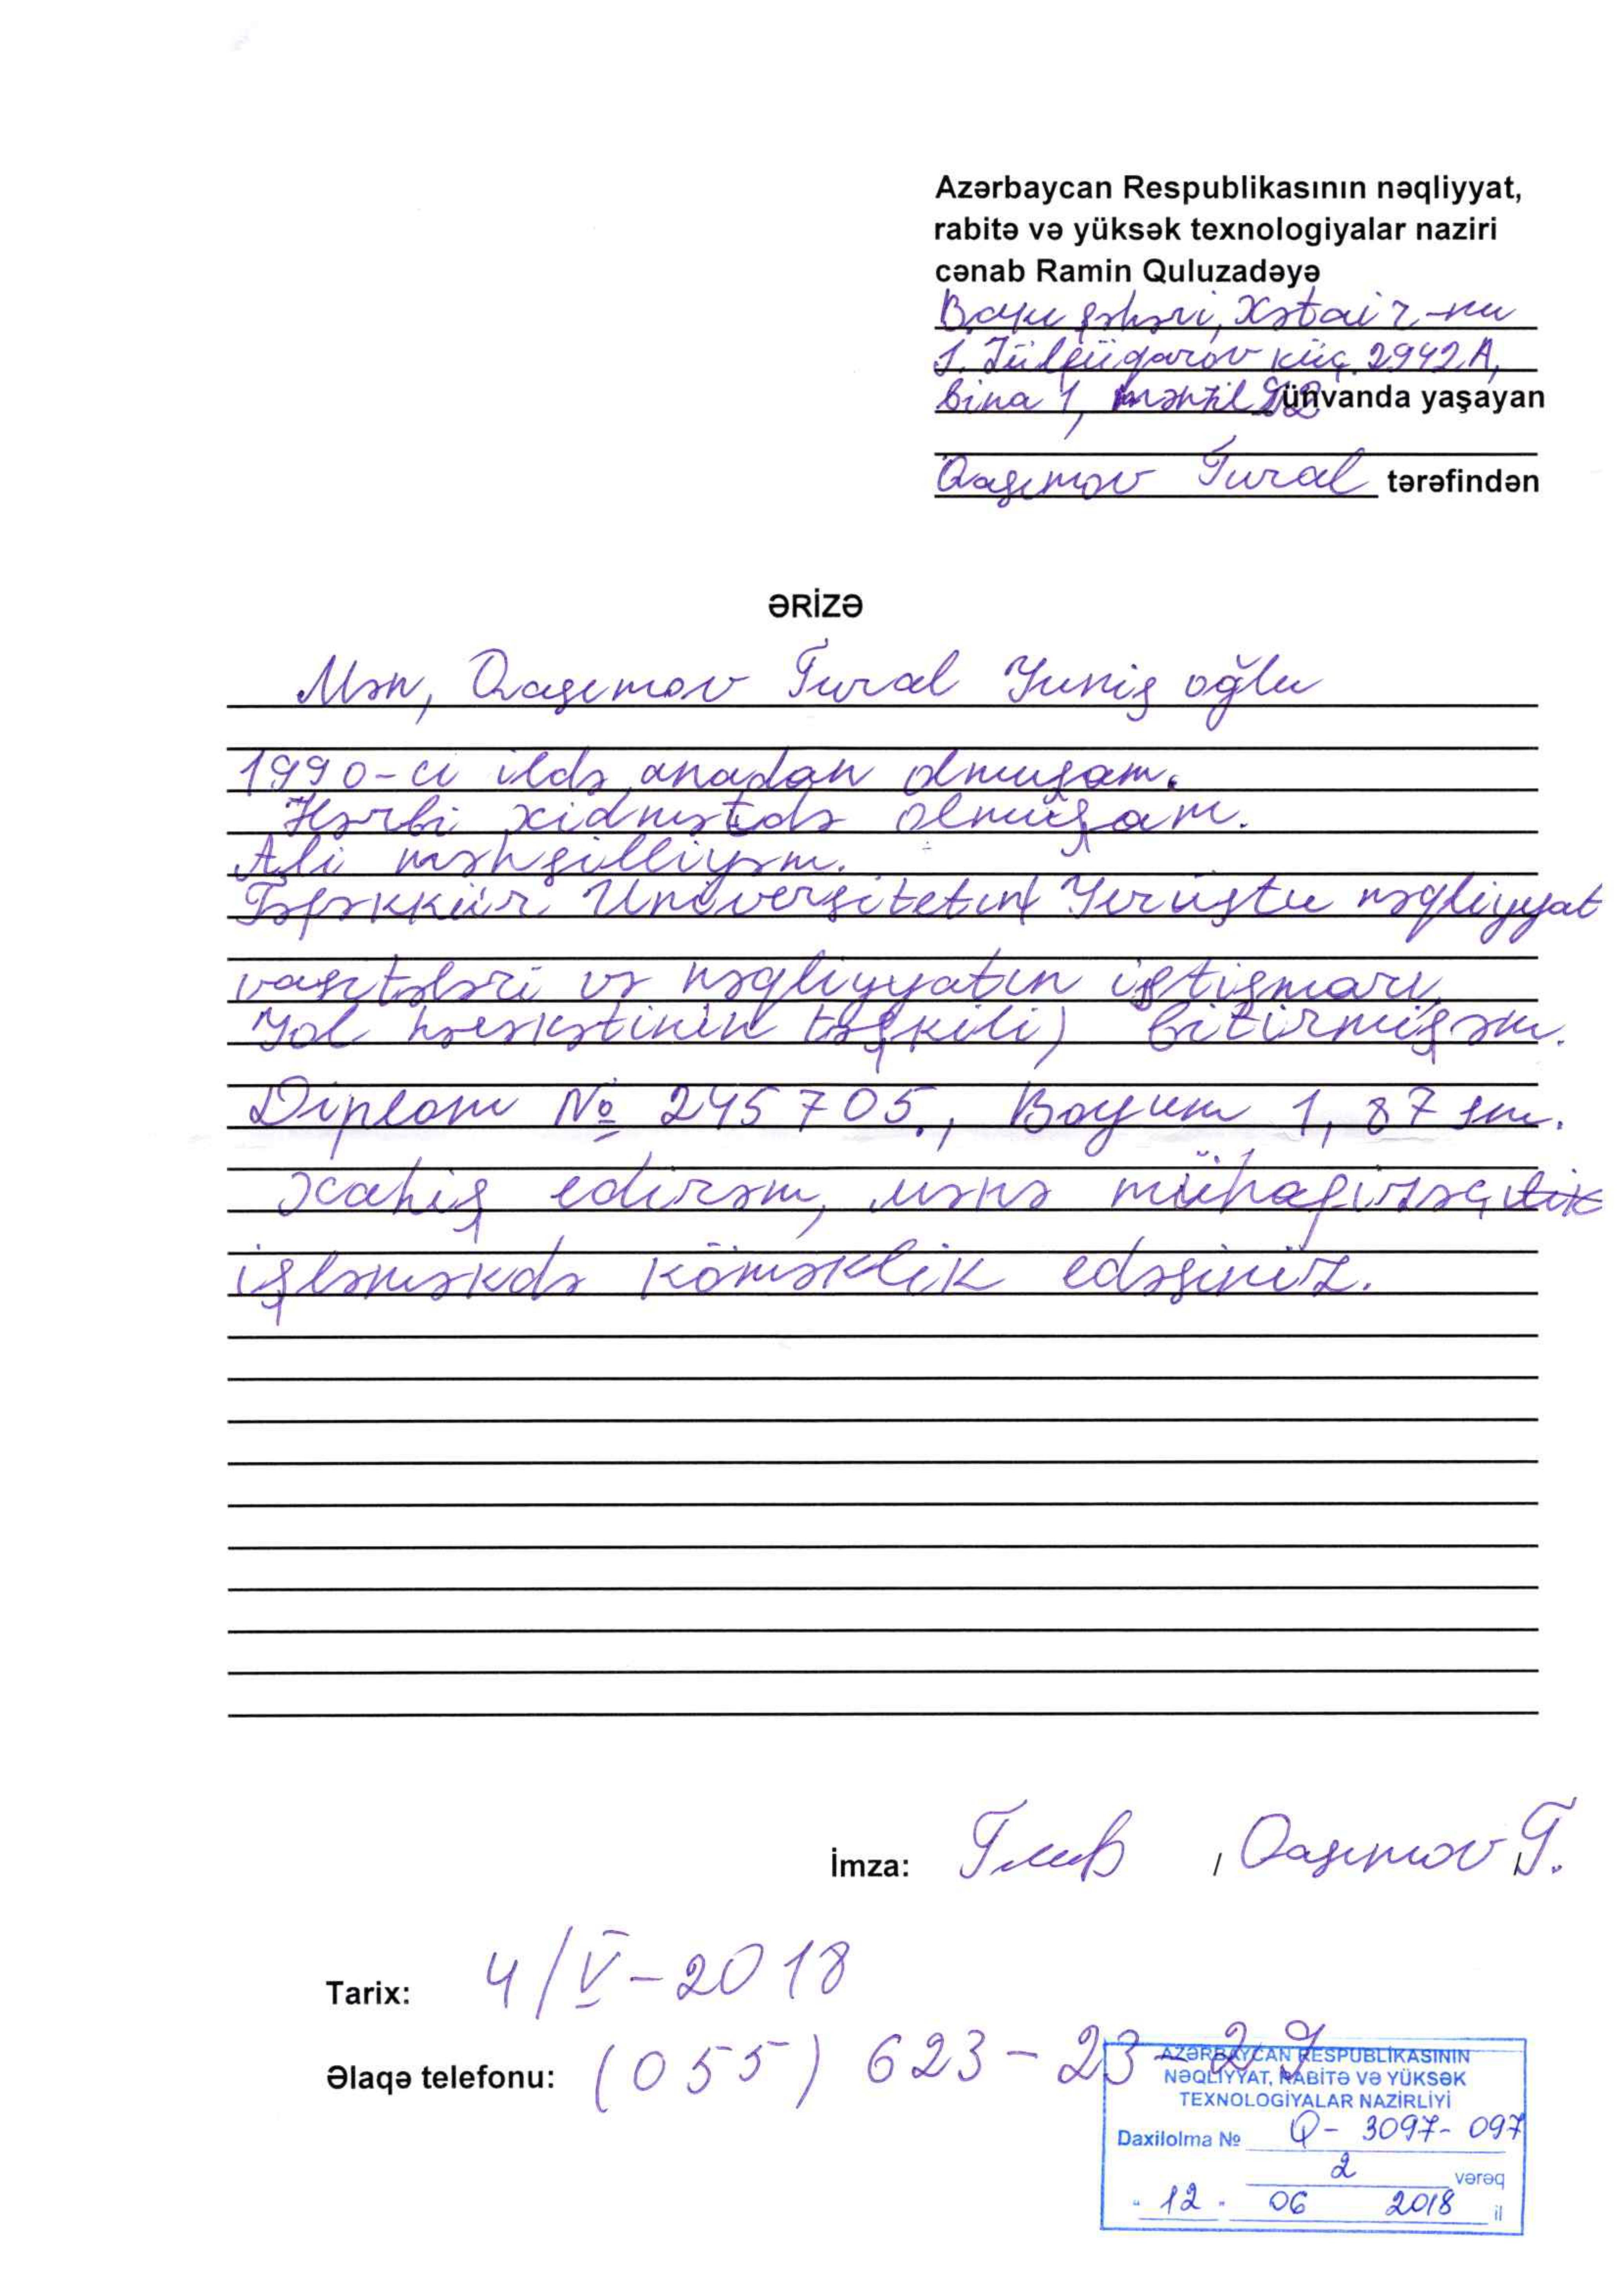 Azərbaycan Respublikasının nəqliyyat,
rabitə və yüksək texnologiyalar naziri
cənab Ramin Quluzadəyə
Bakı şəhəri, Xətai r-nu
S. Zülfüqarov küç. 2942A,
bina 1, mənzil ünvanda yaşayan
Qasımov Tural tərəfindən
ƏRİZƏ
Mən, Qasımov Tural Yunis oğlu
1990-cı ildə anadan olmuşam.
Hərbi xidmətdə olmuşam.
Ali məhsilliyəm.
Təfəkkür Universitetin( Yerüstü nəqliyyat
vasitələri və nəqliyyatın istismarı,
Yol hərəkətinin təşkili) bitirmişəm.
Diplom № 245705., Boyum 1,87 sm.
Xahiş edirəm, mənə mühafizəçilik
işləməkdə köməklik edəsiniz.
İmza: , Qasımov T.
Tarix: 4/V-2018
Əlaqə telefonu: (055) 623-23-29
AZƏRBAYCAN RESPUBLİKASININ
NƏQLİYYAT, RABİTƏ VƏ YÜKSƏK
TEXNOLOGİYALAR NAZİRLİYİ
Daxilolma № Q- 3097-097
2 vərəq
"12" 06 2018 il